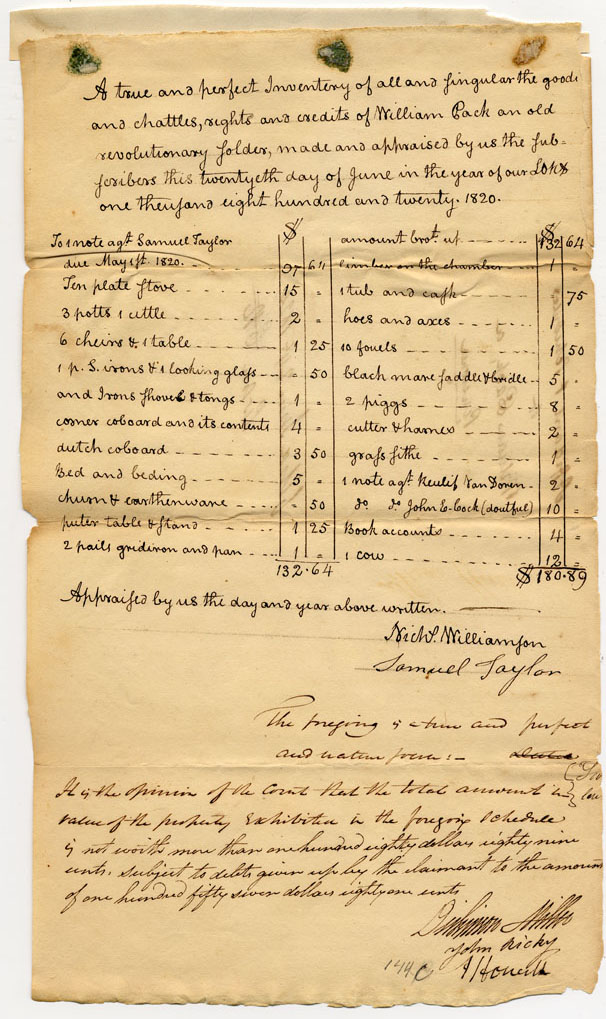 A true and perfect Inventory of all and singular the goods
and chattles, rights and credits of William Pack an old
revolutionary solder, made and appraised by us the sub-
scribers this twentyeth day of June in the year of our LORD
one thousand eight hundred and twenty. 1820.
To 1 note agt. Samuel Taylor $
due May 1st. 1820. 97 64
Ten plate stove 15 "
3 potts 1 cittle 2 "
6 cheirs & 1 table 1 25
1 p. S. irons & 1 looking glass 50
and Irons shovel & tongs 1 "
corner coboard and its contents 4 "
dutch coboard 3 50
Bed and beding 5 "
churn & earthenware 50
puter table & stand 1 25
2 pails gridiron and pan 1 "
132.64
amount brot. up $132 64
timber on the chamber 1 "
1 tub and cask 75
hoes and axes 1 "
10 fouels 1 50
black mare saddle & bridle 5 "
2 piggs 8 "
cutter & harnes 2 "
grass sithe 1 "
1 note agt. Van Doren 2 "
do do John E. Cock (doutful) 10 "
Book accounts 4 "
1 cow 12 "
$180.89
Appraised by us the day and year above written.
Nichs. Williamson
Samuel Taylor
The foregoing is a true and perfect
and
It is the opinion of the Court that the total amount in
value of the property Exhibited in the foregoing Schedule
is not worth more than one hundred eighty dollars eighty nine
cents. Subject to debts given up by the claimant to the amount
of one hundred fifty seven dollars eighty one cents
Miller
John Ricky